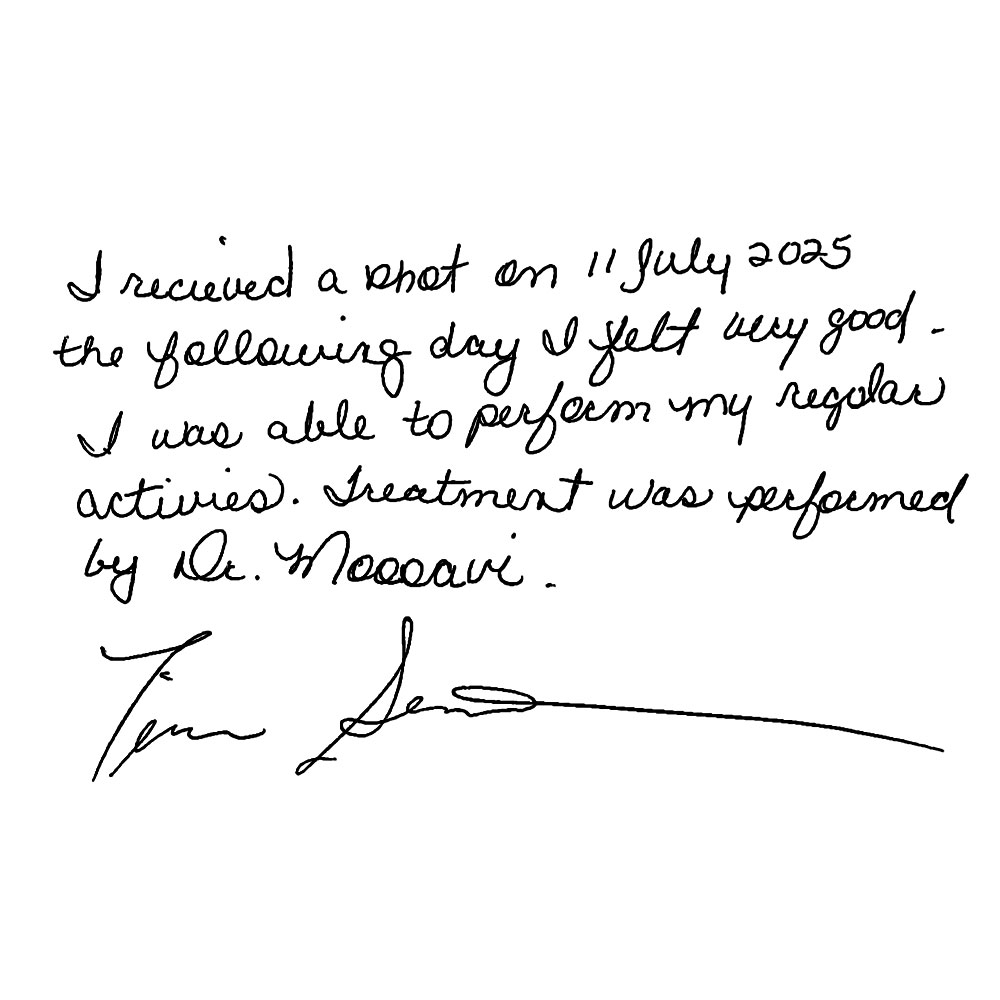 I recieved a shot on 11 July 2025
the following day I felt very good.
I was able to perform my regular
activies. Treatment was performed
by Dr. Moosavi.